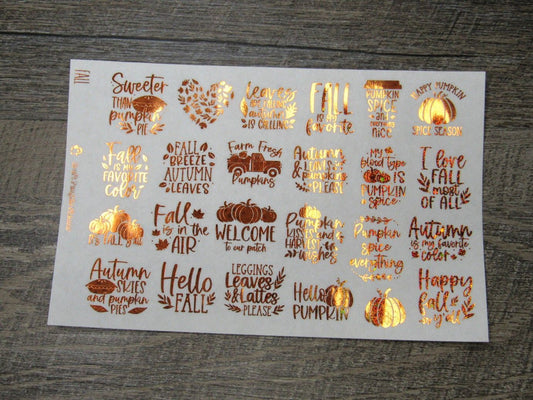 FALL
Sweeter
THAN
pumpkin
PIE
leaves
ARE FALLING
autumn
IS CALLING
FALL
is my
favorite
PUMPKIN
SPICE
and
NICE
HAPPY PUMPKIN
SPICE SEASON
Fall
IS MY
FAVORITE
Color
FALL
BREEZE
AUTUMN
LEAVES
Farm Fresh
Pumpkins
Autumn
leaves
& pumpkins
PLEASE
MY
blood type
IS
PUMPKIN
spice
I love
FALL
most
OF ALL
it's fall y'all
Fall
is in the
AIR
WELCOME
to our patch
Pumpkin
KISSES
and
HARVEST
wishes
Pumpkin
spice
everything
Autumn
is my favorite
color
Autumn
SKIES
and pumpkin
PIES
Hello
FALL
LEGGINGS
Leaves
& Lattes
PLEASE
Hello
PUMPKIN
Happy
fall
y'all